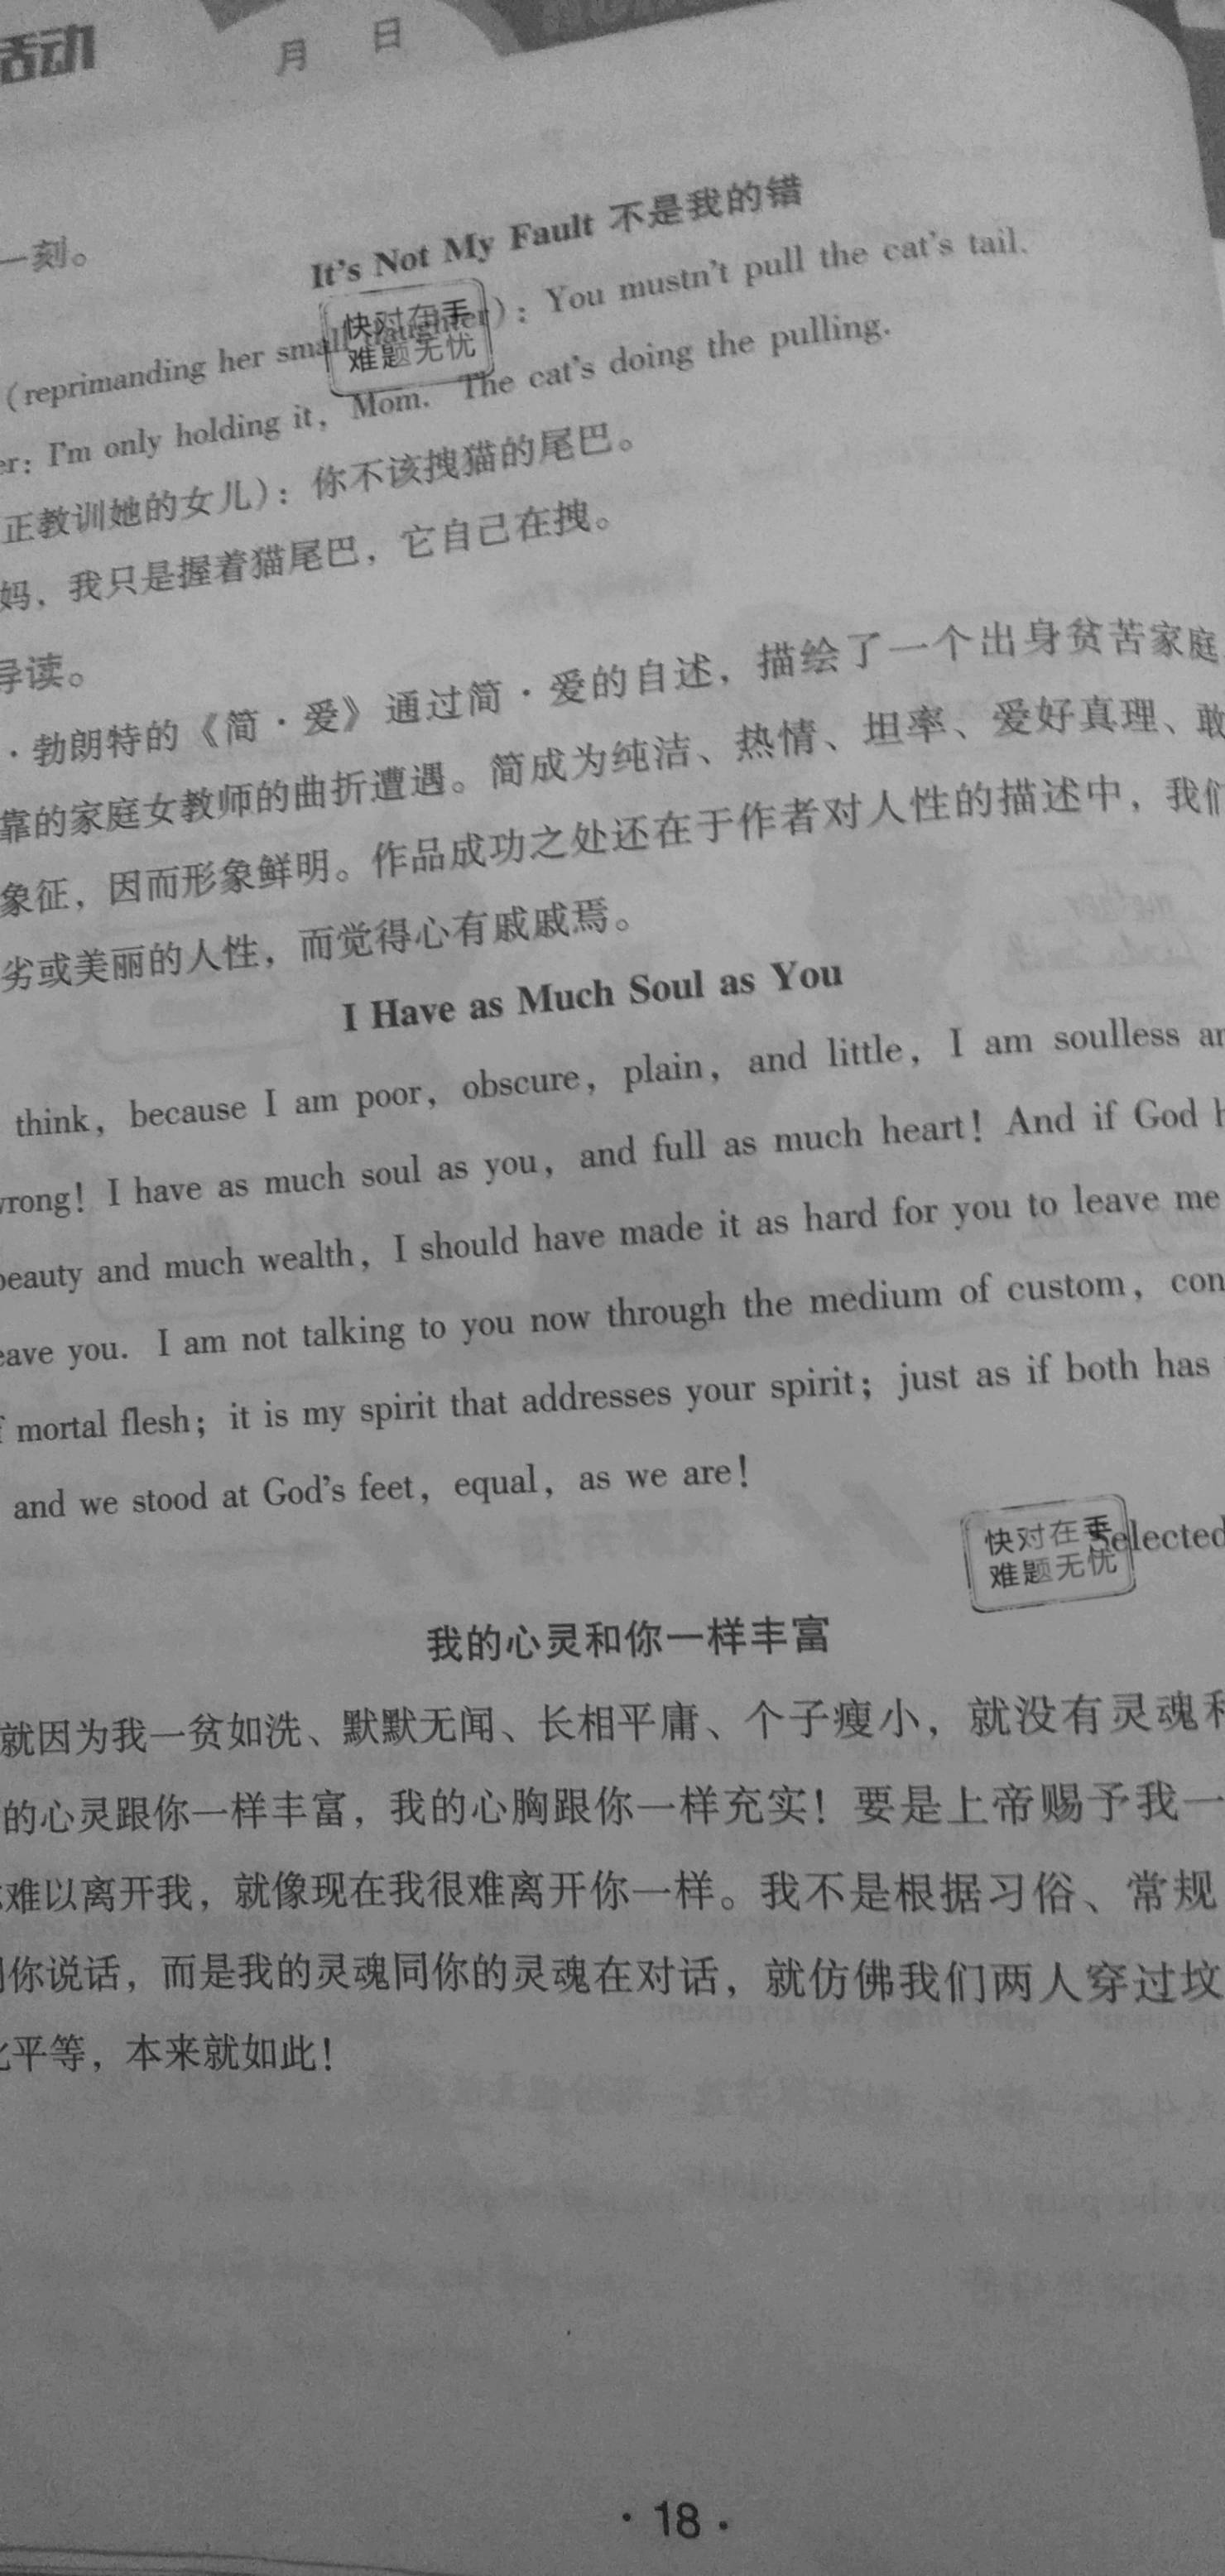 活动
月 日
一刻。
It's Not My Fault 不是我的错
(reprimanding her small daughter): You mustn't pull the cat's tail.
快对在手
难题无忧
er: I'm only holding it, Mom. The cat's doing the pulling.
正教训她的女儿): 你不该拽猫的尾巴。
妈, 我只是握着猫尾巴, 它自己在拽。
导读。
·勃朗特的《简·爱》通过简·爱的自述, 描绘了一个出身贫苦家庭
靠的家庭女教师的曲折遭遇。简成为纯洁、热情、坦率、爱好真理、敢
象征, 因而形象鲜明。作品成功之处还在于作者对人性的描述中, 我们
劣或美丽的人性, 而觉得心有戚戚焉。
I Have as Much Soul as You
think, because I am poor, obscure, plain, and little, I am soulless
wrong! I have as much soul as you, and full as much heart! And if God
beauty and much wealth, I should have made it as hard for you to leave me
eave you. I am not talking to you now through the medium of custom, con
mortal flesh; it is my spirit that addresses your spirit; just as if both has
and we stood at God's feet, equal, as we are!
Selected
快对在手
难题无忧
我的心灵和你一样丰富
就因为我一贫如洗、默默无闻、长相平庸、个子瘦小, 就没有灵魂和
的心灵跟你一样丰富, 我的心胸跟你一样充实! 要是上帝赐予我一
难以离开我, 就像现在我很难离开你一样。我不是根据习俗、常规
你说话, 而是我的灵魂同你的灵魂在对话, 就仿佛我们两人穿过坟
平等, 本来就如此!
·18·